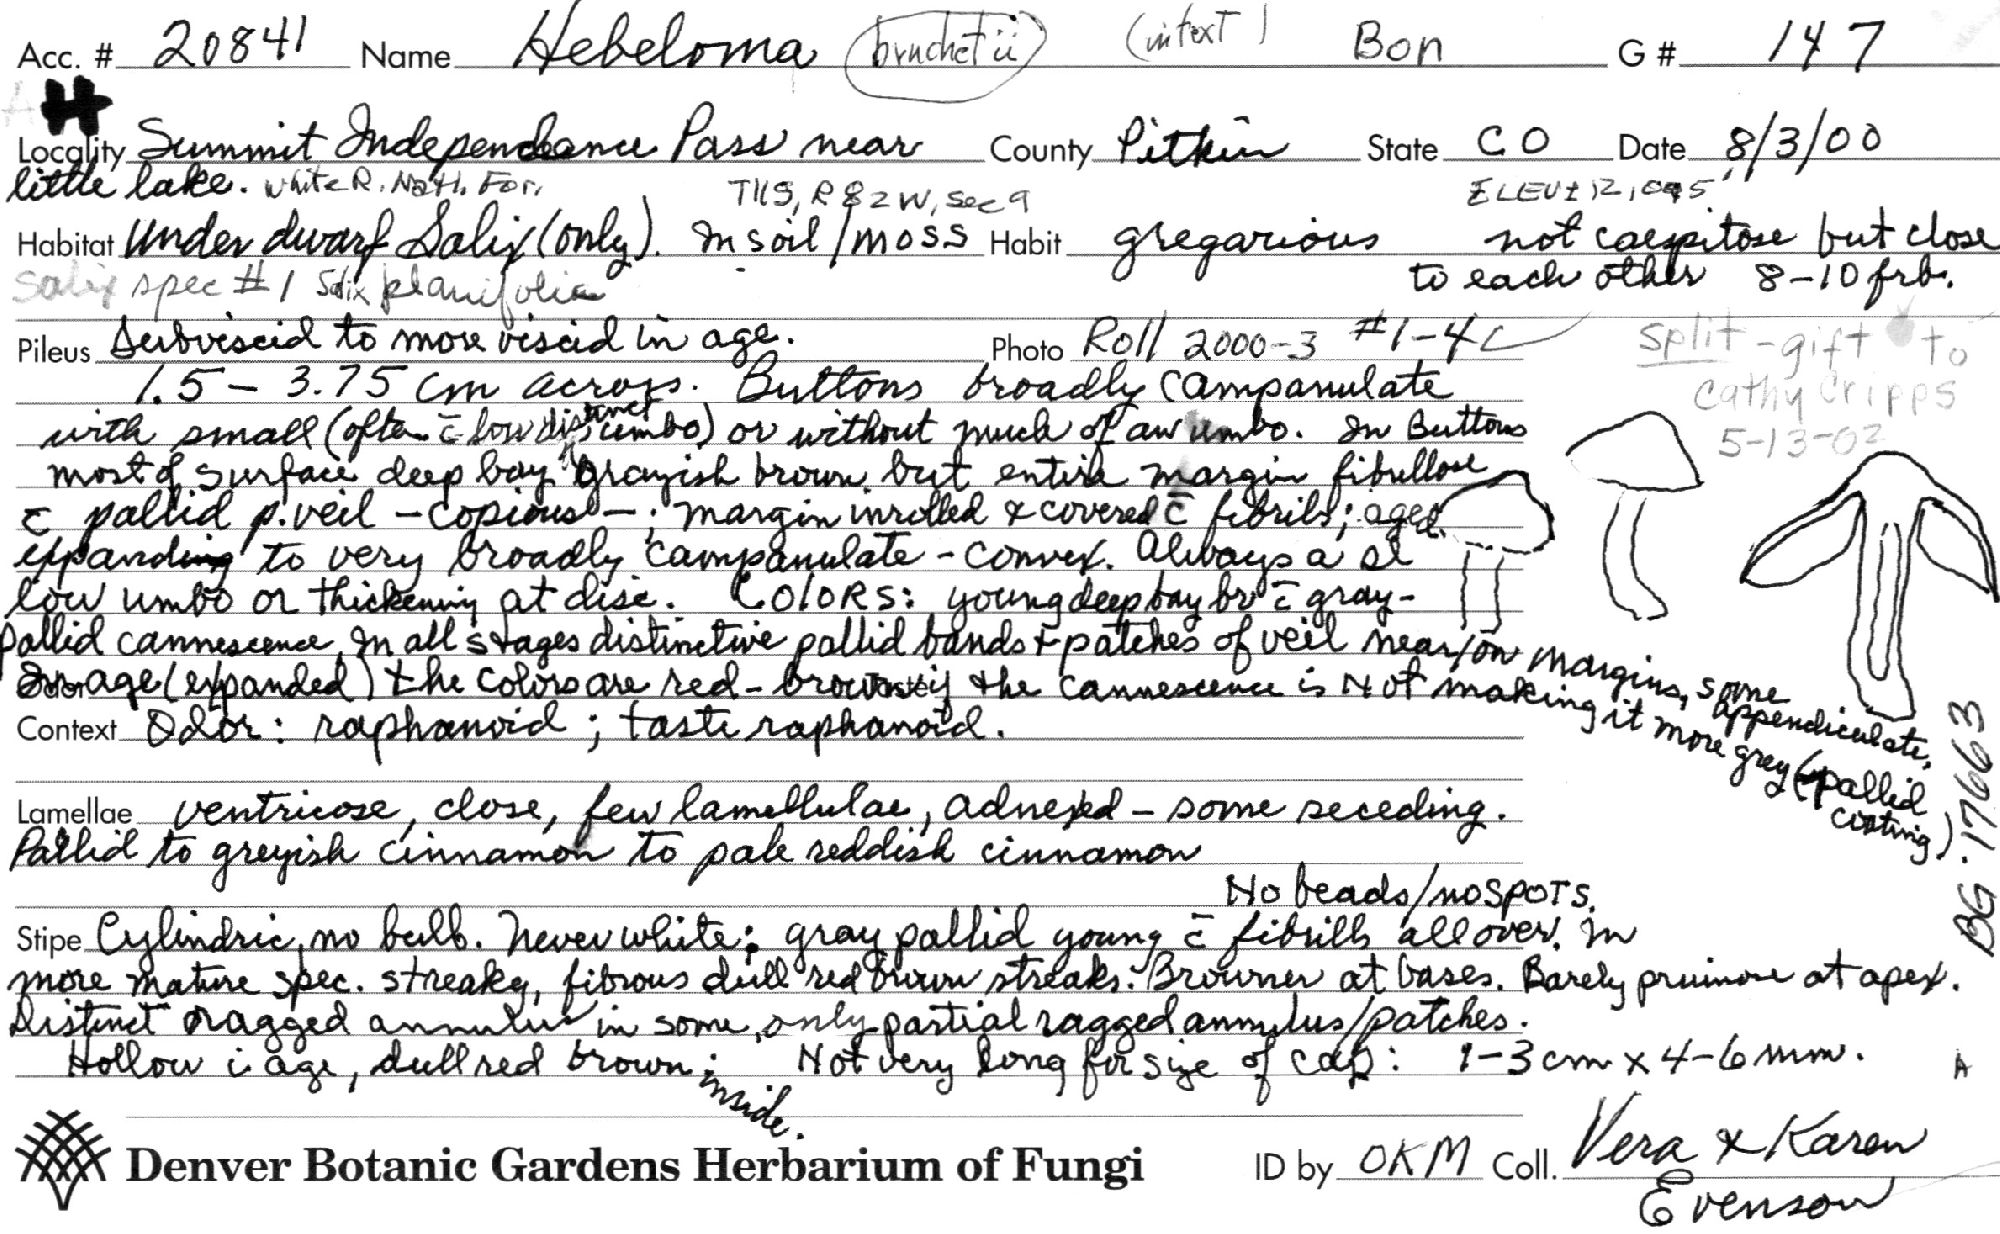 Acc. # 20841 Name Hebeloma bruchetii (in text) Bon G # 147
H
Locality Summit Independence Pass near County Pitkin State CO Date 8/3/00
little lake. White R. Natl. For. T11S, R82W, Sec 9 ELEV ± 12,095'
Habitat Under dwarf Salix (only). In soil/moss Habit gregarious not caespitose but close
to each other 8-10 frb.
Salix spec #1 Salix planifolia
Pileus Subviscid to more viscid in age. Photo Roll 2000-3 #1-4
split - gift to
Cathy Cripps
5-13-02
1.5 - 3.75 cm across. Buttons broadly campanulate
with small (often c̄ low distinct umbo) or without much of an umbo. In Buttons
most of surface deep bay grayish brown but entire margin fibrillose
c̄ pallid p. veil - copious - ; margin inrolled & covered c̄ fibrils; aged
expanding to very broadly campanulate - convex. Always a sl
low umbo or thickening at disc. COLORS: young deep bay br c̄ gray-
pallid cannescence. In all stages distinctive pallid bands + patches of veil near/on margins, some
appendiculate.
In age (expanded) the colors are red-brown if the cannescence is Not making it more grey (pallid
coating)
Odor Taste
Context Odor: raphanoid; taste raphanoid.
Lamellae ventricose, close, few lamellulae, adnexed - some seceding.
Pallid to greyish cinnamon to pale reddish cinnamon
No beads/no spots.
Stipe Cylindric, no bulb. Never white; gray pallid young c̄ fibrills all over. In
more mature spec. streaky, fibrous dull red brown streaks. Browner at bases. Barely pruinose at apex.
Distinct ragged annulus in some, only partial ragged annulus/patches.
Hollow i age, dull red brown inside. Not very long for size of cap: 1-3 cm x 4-6 mm.
A
BG.17663
Denver Botanic Gardens Herbarium of Fungi ID by OKM Coll. Vera & Karen
Evenson